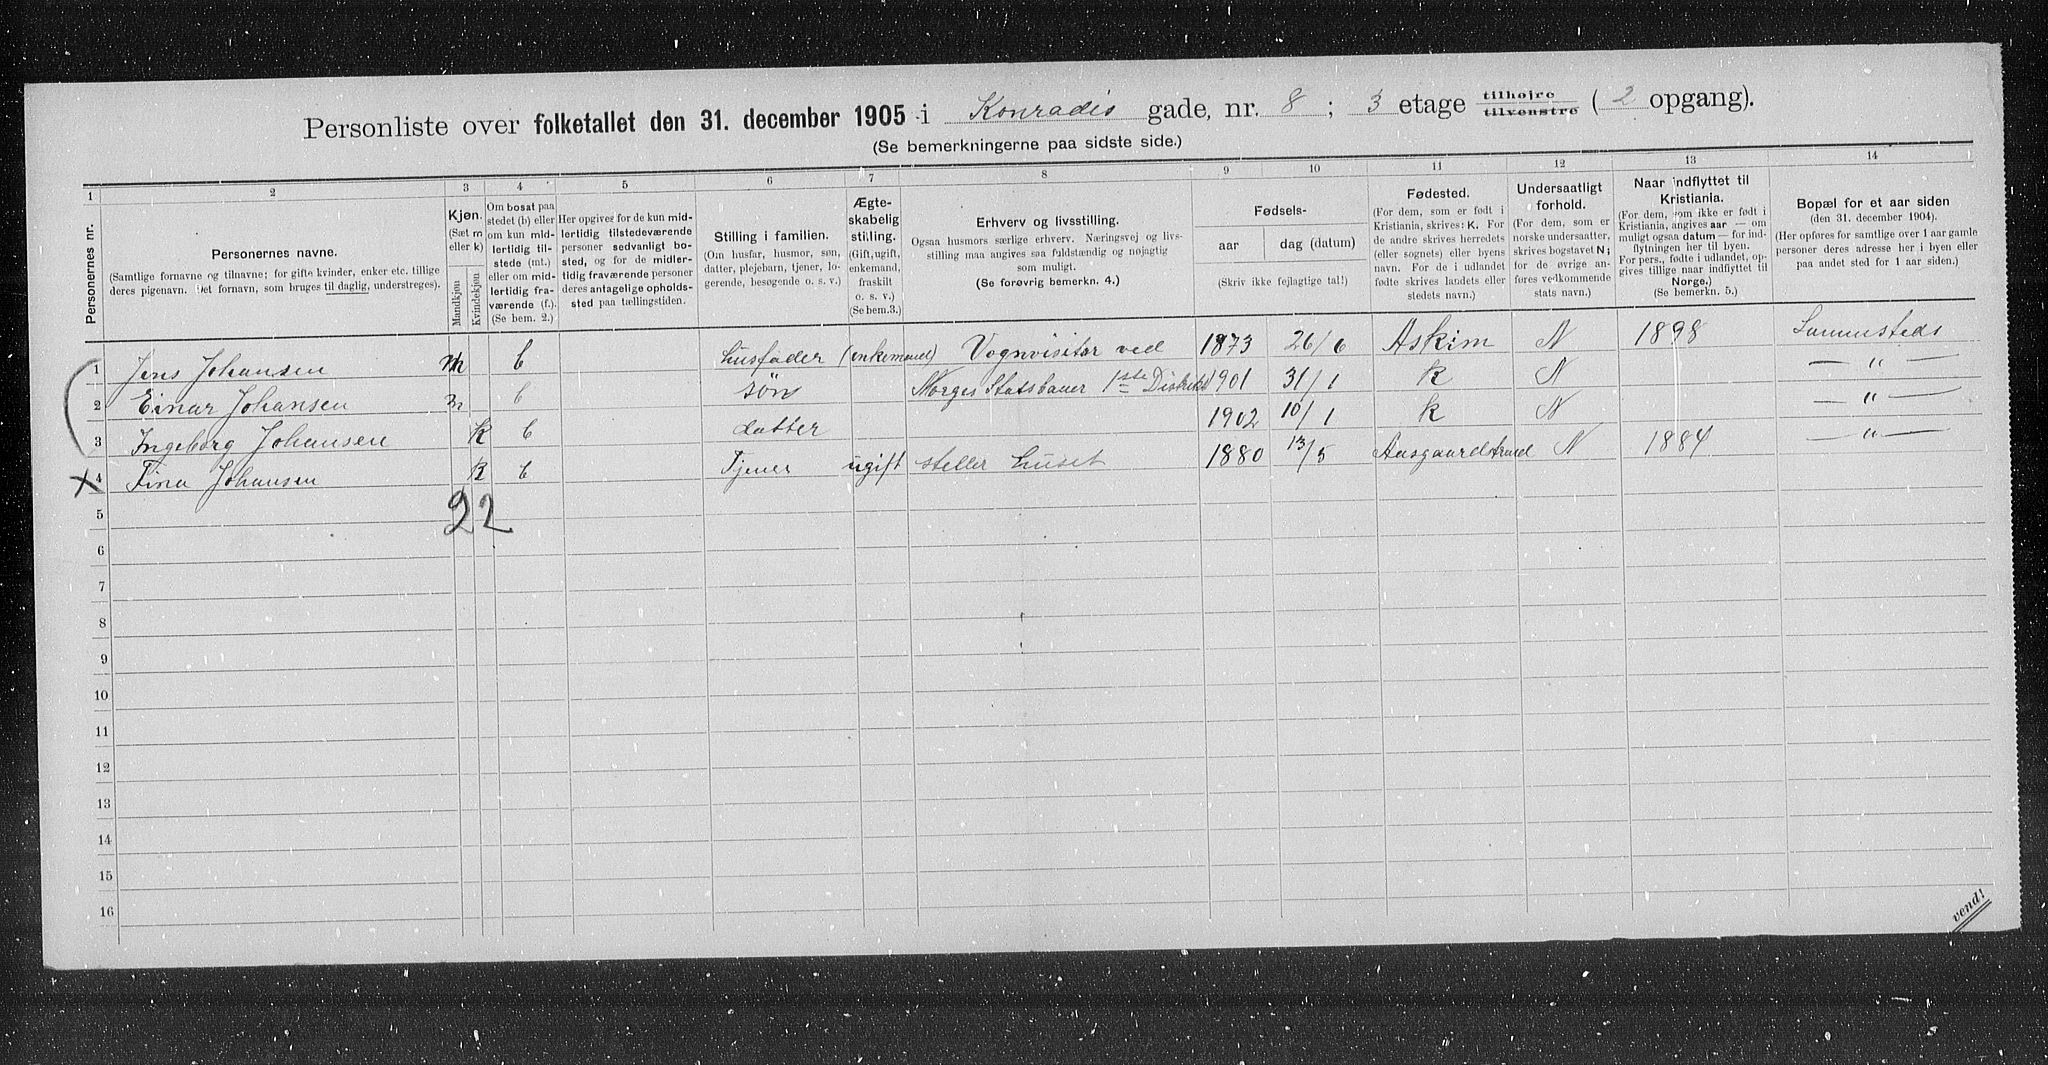 Personliste over folketallet den 31. december 1905 i Konradis gade, nr. 8 ; 3 etage tilhøjre tilvenstre ( 2 opgang).
(Se bemerkningerne paa sidste side.)
1 2 3 4 5 6 7 8 9 10 11 12 13 14
Personernes nr.
Personernes navne.
(Samtlige fornavne og tilnavne; for gifte kvinder, enker etc. tillige
deres pigenavn. Det fornavn, som bruges til daglig, understreges).
Kjøn.
(Sæt m
eller k)
Mandkjøn
Kvindekjøn
Om bosat paa
stedet (b) eller
om kun mid-
lertidig til-
stede (mt.)
eller om mid-
lertidig fra-
værende (f.).
(Se bem. 2.)
Her opgives for de kun mid-
lertidig tilstedeværende
personer sedvanligt bo-
sted, og for de midler-
tidig fraværende personer
deres antagelige opholds-
sted paa tællingstiden.
Stilling i familien.
(Om husfar, husmor, søn,
datter, plejebarn, tjener, lo-
gerende, besøgende o. s. v.)
Ægte-
skabelig
stilling.
(Gift, ugift,
enkemand,
fraskilt
o. s. v.)
(Se bem.3.)
Erhverv og livsstilling.
Ogsaa husmors særlige erhverv. Næringsvej og livs-
stilling maa angives saa fuldstændig og nøjagtig
som muligt.
(Se forøvrig bemerkn. 4.)
Fødsels-
aar
dag (datum)
(Skriv ikke fejlagtige tal!)
Fødested.
(For dem, som er født i
Kristiania, skrives: K. For
de andre skrives herredets
(eller sognets) eller byens
navn. For de i udlandet
fødte skrives landets eller
stedets navn.)
Undersaatligt
forhold.
(For dem, som er
norske undersaatter,
skrives bogstavet N;
for de øvrige an-
føres vedkommende
stats navn.)
Naar indflyttet til
Kristiania.
(For dem, som ikke er født i
Kristiania, angives aar — om
muligt ogsaa datum — for ind-
flytningen her til byen.
For pers., fødte i udlandet, op-
gives tillige naar indflyttet til
Norge.)
(Se bemerkn. 5.)
Bopæl for et aar siden
(den 31. december 1904).
(Her opføres for samtlige over 1 aar gamle
personer deres adresse her i byen eller
paa andet sted for 1 aar siden.)
1 Jens Johansen m b husfader (enkemand) Vognvisitør ved 1873 26/6 Askim N 1898 Sammesteds
2 Einar Johansen m b søn Norges Statsbaner 1ste Distrikt 1901 31/1 K N — " —
3 Ingeborg Johansen K b datter 1902 10/1 K N — " —
X 4 Fina Johansen K b Tjener ugift steller huset 1880 13/5 Aasgaardstrand N 1884 — " —
22
5
6
7
8
9
10
11
12
13
14
15
16
vend!